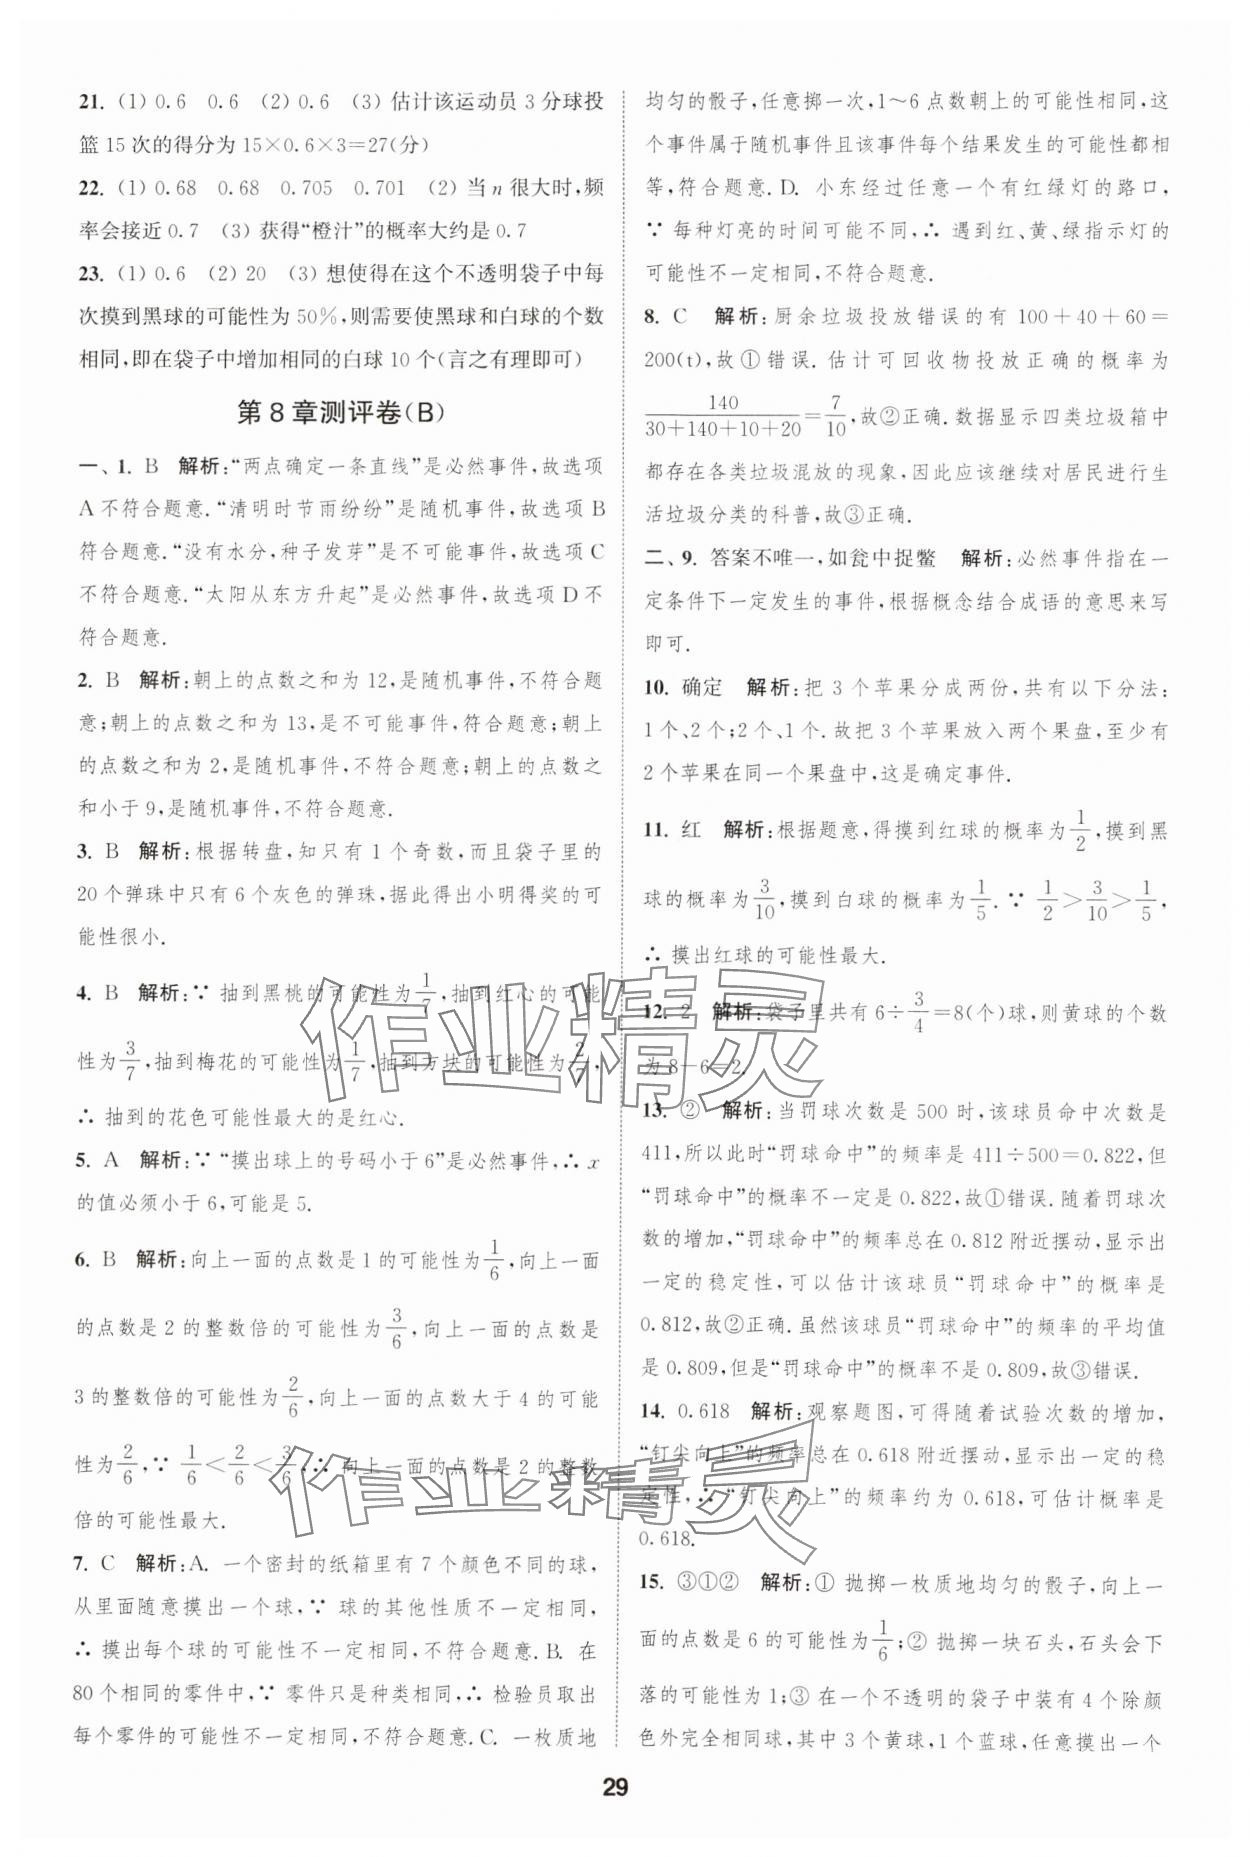 21. (1) 0.6　0.6　(2) 0.6　(3) 估计该运动员3分球投
篮15次的得分为15×0.6×3=27(分)
22. (1) 0.68　0.68　0.705　0.701　(2) 当n很大时,频
率会接近0.7　(3) 获得“橙汁”的概率大约是0.7
23. (1) 0.6　(2) 20　(3) 想使得在这个不透明袋子中每
次摸到黑球的可能性为50%,则需要使黑球和白球的个数
相同,即在袋子中增加相同的白球10个(言之有理即可)
第8章测评卷(B)
一、1. B　解析:“两点确定一条直线”是必然事件,故选项
A不符合题意.“清明时节雨纷纷”是随机事件,故选项B
符合题意.“没有水分,种子发芽”是不可能事件,故选项C
不符合题意.“太阳从东方升起”是必然事件,故选项D不
符合题意.
2. B　解析:朝上的点数之和为12,是随机事件,不符合题
意;朝上的点数之和为13,是不可能事件,符合题意;朝上
的点数之和为2,是随机事件,不符合题意;朝上的点数之
和小于9,是随机事件,不符合题意.
3. B　解析:根据转盘,知只有1个奇数,而且袋子里的
20个弹珠中只有6个灰色的弹珠,据此得出小明得奖的可
能性很小.
4. B　解析:∵ 抽到黑桃的可能性为1/7,抽到红心的可能
性为3/7,抽到梅花的可能性为1/7,抽到方块的可能性为2/7,
∴ 抽到的花色可能性最大的是红心.
5. A　解析:∵ “摸出球上的号码小于6”是必然事件,∴ x
的值必须小于6,可能是5.
6. B　解析:向上一面的点数是1的可能性为1/6,向上一面
的点数是2的整数倍的可能性为3/6,向上一面的点数是
3的整数倍的可能性为2/6,向上一面的点数大于4的可能
性为2/6,∵ 1/6<2/6<3/6,∴ 向上一面的点数是2的整数
倍的可能性最大.
7. C　解析:A. 一个密封的纸箱里有7个颜色不同的球,
从里面随意摸出一个球,∵ 球的其他性质不一定相同,
∴ 摸出每个球的可能性不一定相同,不符合题意.B. 在
80个相同的零件中,∵ 零件只是种类相同,∴ 检验员取出
每个零件的可能性不一定相同,不符合题意.C. 一枚质地
均匀的骰子,任意掷一次,1～6点数朝上的可能性相同,这
个事件属于随机事件且该事件每个结果发生的可能性都相
等,符合题意.D. 小东经过任意一个有红绿灯的路口,
∵ 每种灯亮的时间可能不同,∴ 遇到红、黄、绿指示灯的
可能性不一定相同,不符合题意.
8. C　解析:厨余垃圾投放错误的有100+40+60=
200(t),故①错误.估计可回收物投放正确的概率为
140/(30+140+10+20)=7/10,故②正确.数据显示四类垃圾箱中
都存在各类垃圾混放的现象,因此应该继续对居民进行生
活垃圾分类的科普,故③正确.
二、9. 答案不唯一,如瓮中捉鳖　解析:必然事件指在一
定条件下一定发生的事件,根据概念结合成语的意思来写
即可.
10. 确定　解析:把3个苹果分成两份,共有以下分法:
1个、2个;2个、1个.故把3个苹果放入两个果盘,至少有
2个苹果在同一个果盘中,这是确定事件.
11. 红　解析:根据题意,得摸到红球的概率为1/2,摸到黑
球的概率为3/10,摸到白球的概率为1/5.∵ 1/2>3/10>1/5,
∴ 摸出红球的可能性最大.
12. 2　解析:袋子里共有6÷3/4=8(个)球,则黄球的个数
为8-6=2.
13. ②　解析:当罚球次数是500时,该球员命中次数是
411,所以此时“罚球命中”的频率是411÷500=0.822,但
“罚球命中”的概率不一定是0.822,故①错误.随着罚球次
数的增加,“罚球命中”的频率总在0.812附近摆动,显示出
一定的稳定性,可以估计该球员“罚球命中”的概率是
0.812,故②正确.虽然该球员“罚球命中”的频率的平均值
是0.809,但是“罚球命中”的概率不是0.809,故③错误.
14. 0.618　解析:观察题图,可得随着试验次数的增加,
“钉尖向上”的频率总在0.618附近摆动,显示出一定的稳
定性,∴ “钉尖向上”的频率约为0.618,可估计概率是
0.618.
15. ③①②　解析:① 抛掷一枚质地均匀的骰子,向上一
面的点数是6的可能性为1/6;② 抛掷一块石头,石头会下
落的可能性为1;③ 在一个不透明的袋子中装有4个除颜
色外完全相同球,其中3个黄球,1个蓝球,任意摸出一个
作业精灵
作业精灵
29